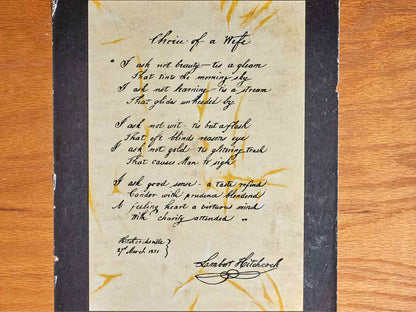 Choice of a Wife
" I ask not beauty - tis a gleam
That tints the morning sky
I ask not learning - tis a stream
That glides unheeded by
I ask not wit - tis but a flash
That oft blinds reasons eye
I ask not gold - tis glittering trash
That causes Man to sigh
I ask good sense - a taste refind
Candor with prudence blendend
A feeling heart a virtuous mind
With charity attended "
March 1821
Lambert Hitchcock